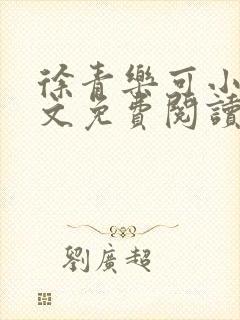 徐青樂可小
文免費閱讀
劉廣超